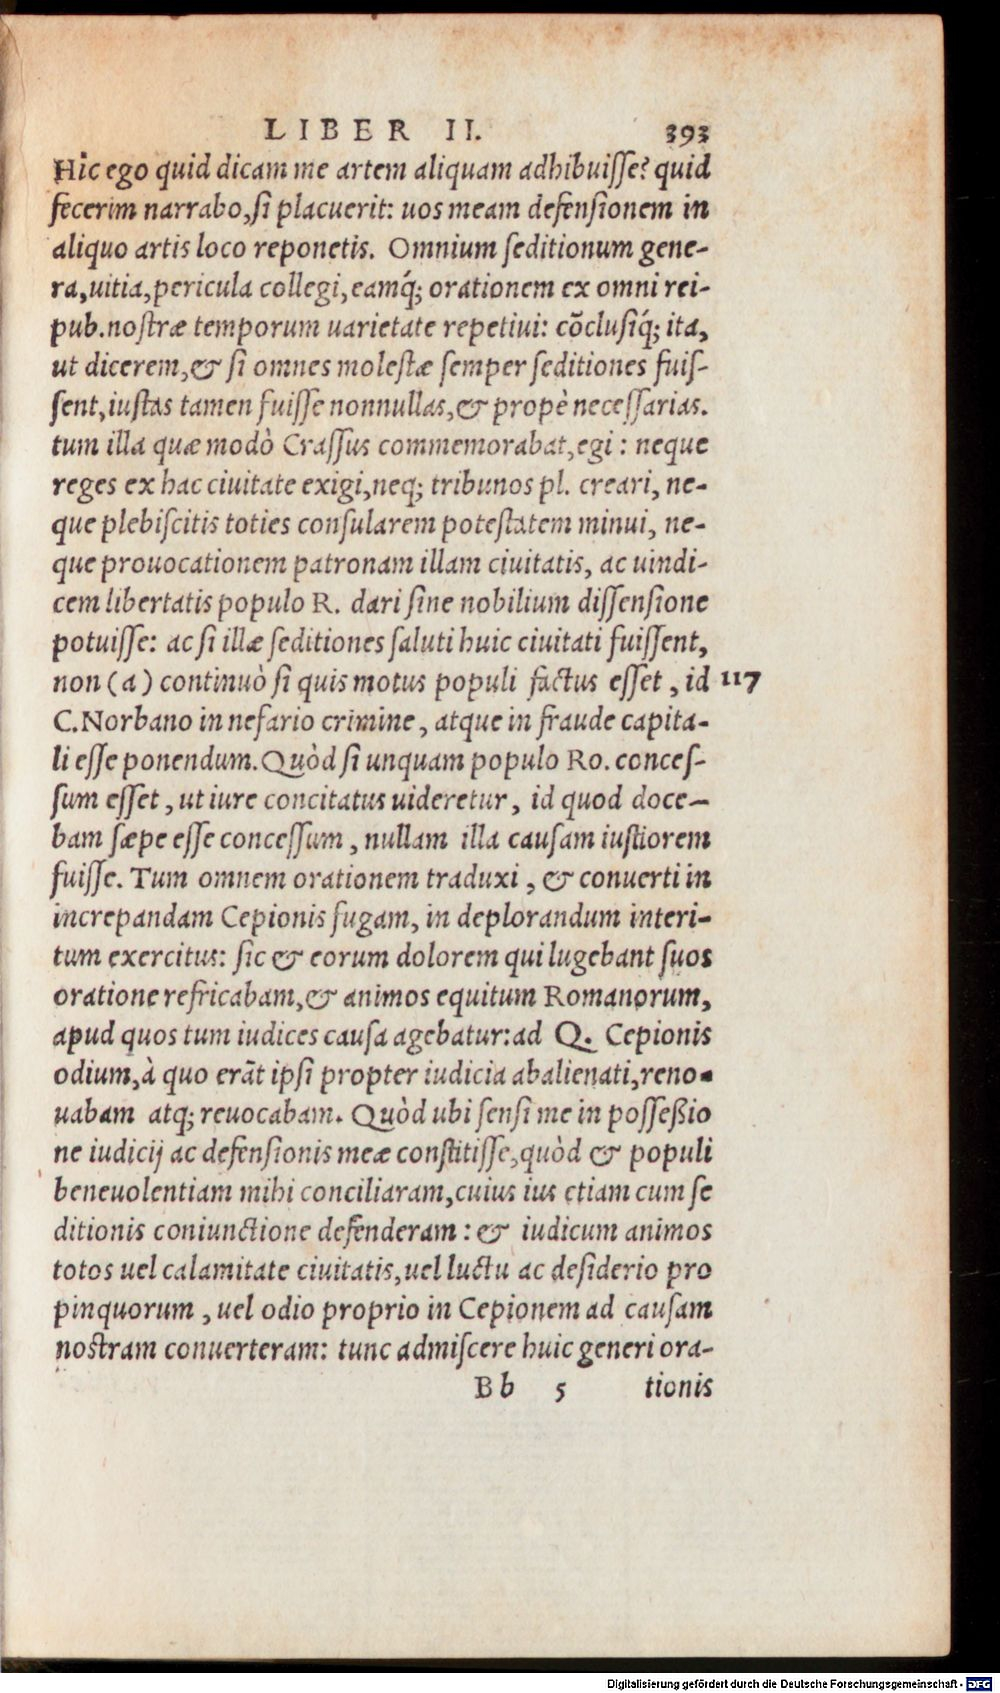 LIBER II. 393
Hic ego quid dicam me artem aliquam adhibuisse? quid
fecerim narrabo, si placuerit: uos meam defensionem in
aliquo artis loco reponetis. Omnium seditionum gene-
ra, uitia, pericula collegi, eamq́; orationem ex omni rei-
pub. nostræ temporum uarietate repetiui: cõclusiq́; ita,
ut dicerem, & si omnes molestæ semper seditiones fuis-
sent, iustas tamen fuisse nonnullas, & propè necessarias.
tum illa quæ modò Crassus commemorabat, egi: neque
reges ex hac ciuitate exigi, neq; tribunos pl. creari, ne-
que plebiscitis toties consularem potestatem minui, ne-
que prouocationem patronam illam ciuitatis, ac uindi-
cem libertatis populo R. dari sine nobilium dissensione
potuisse: ac si illæ seditiones saluti huic ciuitati fuissent,
non (a) continuò si quis motus populi factus esset, id 117
C. Norbano in nefario crimine, atque in fraude capita-
li esse ponendum. Quòd si unquam populo Ro. conces-
sum esset, ut iure concitatus uideretur, id quod doce-
bam sæpe esse concessum, nullam illa causam iustiorem
fuisse. Tum omnem orationem traduxi, & conuerti in
increpandam Cepionis fugam, in deplorandum interi-
tum exercitus: sic & eorum dolorem qui lugebant suos
oratione refricabam, & animos equitum Romanorum,
apud quos tum iudices causa agebatur: ad Q. Cepionis
odium, à quo erãt ipsi propter iudicia abalienati, reno-
uabam atq; reuocabam. Quòd ubi sensi me in posseßio
ne iudicij ac defensionis meæ constitisse, quòd & populi
beneuolentiam mihi conciliaram, cuius ius etiam cum se
ditionis coniunctione defenderam: & iudicum animos
totos uel calamitate ciuitatis, uel luctu ac desiderio pro
pinquorum, uel odio proprio in Cepionem ad causam
nostram conuerteram: tunc admiscere huic generi ora-
Bb 5 tionis
Digitalisierung gefördert durch die Deutsche Forschungsgemeinschaft - DFG